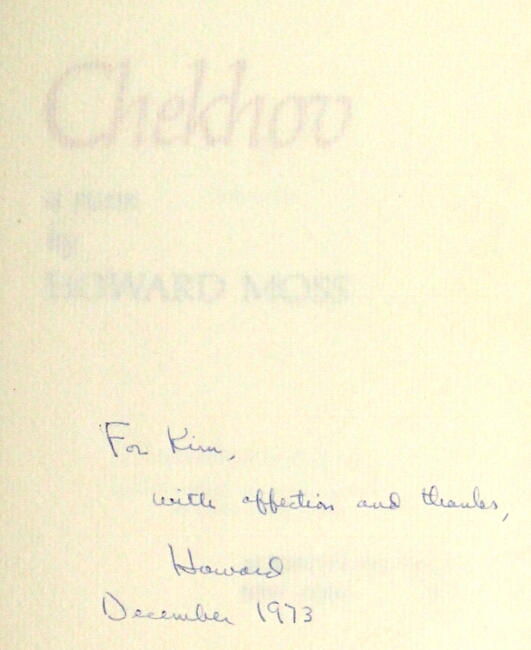 Chekhov
a poem
by
HOWARD MOSS
For Kim,
with affection and thanks,
Howard
December 1973